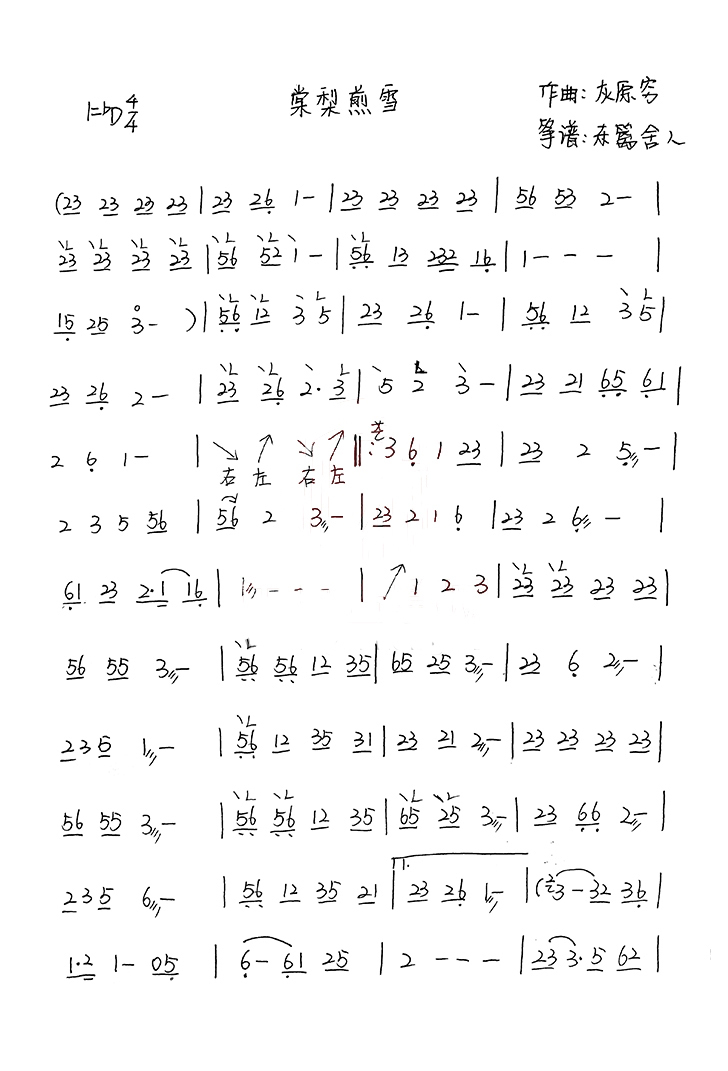 1=♭D 4/4
棠梨煎雪
作曲:灰原穷
筝谱:东篱舍人
(23 23 23 23 | 23 26 1 – | 23 23 23 23 | 56 53 2 – |
23 23 23 23 | 56 52 1 – | 56 13 232 16 | 1 – – – |
15 25 3 – ) | 56 12 3 5 | 23 26 1 – | 56 12 3 5 |
23 26 2 – | 23 26 2· 3 | 5 2 3 – | 23 21 65 61 |
2 6 1 – | ↘ ↗ ↘ ↗ ‖: 3 6 1 23 | 23 2 5 – |
右 左 右 左
2 3 5 56 | 56 2 3 – | 23 2 1 6 | 23 2 6 – |
61 23 2·1 16 | 1 – – – | ↗ 1 2 3 | 23 23 23 23 |
56 55 3 – | 56 56 12 35 | 65 25 3 – | 23 6 2 – |
235 1 – | 56 12 35 31 | 23 21 2 – | 23 23 23 23 |
56 55 3 – | 56 56 12 35 | 65 25 3 – | 23 66 2 – |
235 6 – | 56 12 35 21 | 23 26 1 – | (3 – 32 36 |
1·2 1 – 05 | 6 – 61 25 | 2 – – – | 23 3·5 62 |